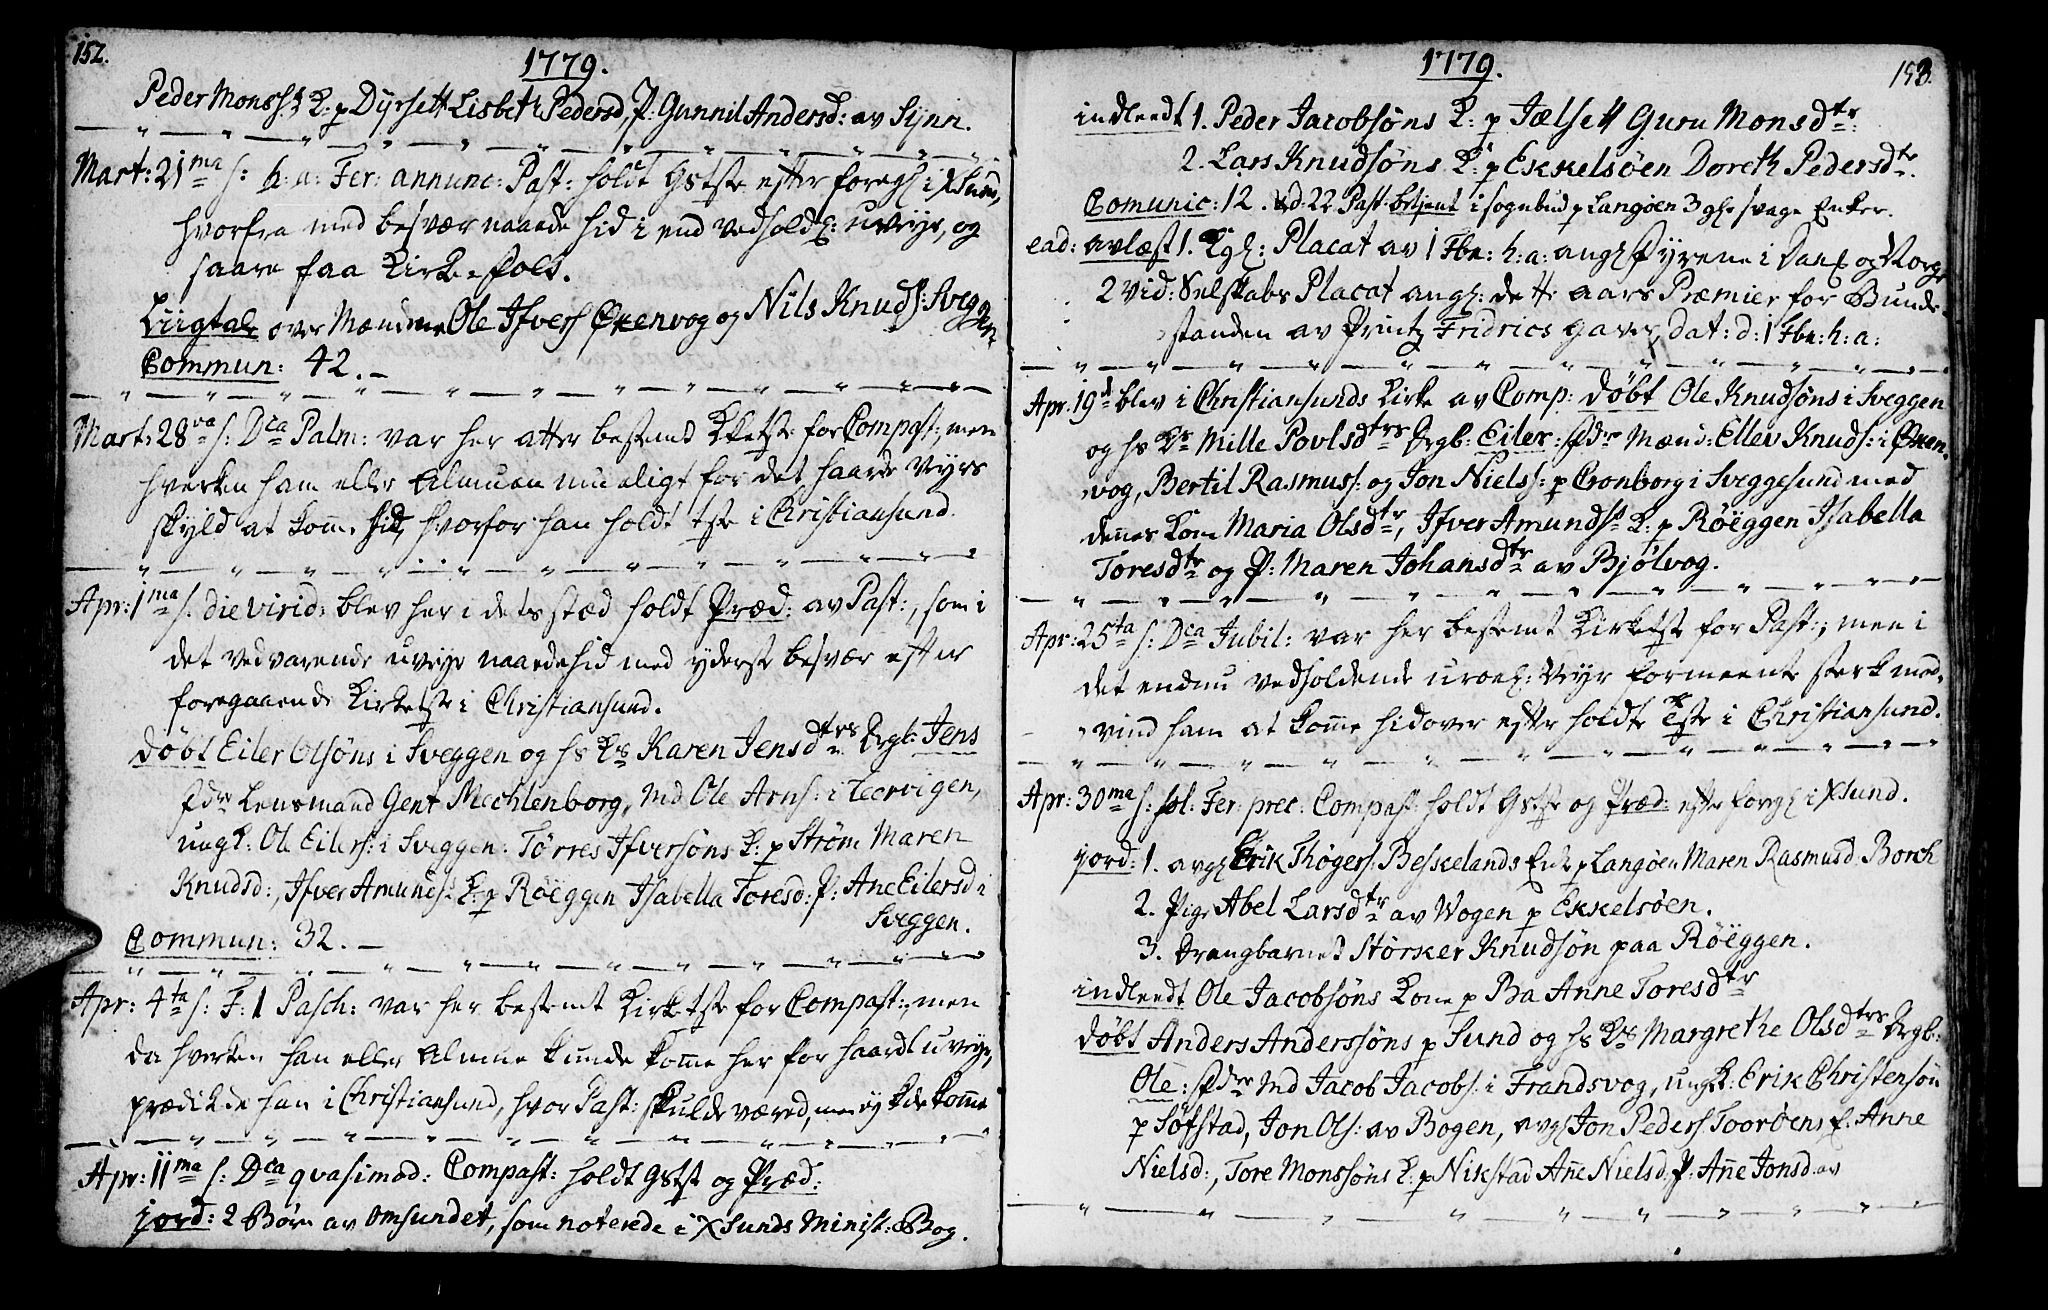 152.
1779.
Peder Monss: K: p Dyrsett Lisbeth Pedersd, P: Gunnil Andersd: av Synn.
Mart: 21ma s: h: a: Fer: annunc: Past: holdt Gstste efter foregl i Xsund,
hvorfra med besvær naaede hid i end vedhold: uveyr, og
saare faa Kirke-folk.
Liigtale over Mændene Ole Ifvers Øxenvog og Nils Knuds: Sveggen
Commun: 42. –
Mart: 28va s: Dca Palm: var her atter bestemd Kketste for Compast:, men
hverken ham eller Almuen mueligt for det haarde Veyrs
skyld at komme hid, hvorfor han holdt tste i Christiansund.
Apr: 1ma s: die virid: blev her i dets stæd holdt Præd: av Past:, som i
det vedvarende uveyr naaede hid med yderste besvær efter
foregaaende Kirketste i Christiansund.
döbt Eiler Olsöns i Sveggen og hs Ks Karen Jensdtrs Drgb: Jens
fdre Lensmand Gent Mechlenborg, Md Ole Arns: i Leervigen,
ungk: Ole Eilers: i Sveggen: Törres Ifversöns K: p Ström Maren
Knudsd:, Ifver Amunds: K: p Röeggen Isabella Toresd: P: Ane Eilersd i
Sveggen.
Commun: 32. –
Apr: 4ta s: F: 1 Pasch: var her bestemt Kirketste for Compast:, men
da hverken han eller Almue kunde komme her for haardt uveyr,
prædikede han i Christiansund, hvor Past: skulde været, men ey kde komme
Apr: 11ma s: Dca quasimod: Compast: holdt Gstst og Præd:
jord: 2 Börn av Omsundet, som noterede i Xsunds Minist: Bog.
1779.
153.
indleedt 1. Peder Jacobsöns K: p Jælsett Guru Monsdtr:
2. Lars Knudsöns K: p Ekkelsöen Doreth Pedersdtr.
Comunic: 12. d: 22 Past betjent i sognebud p Langöen 3 gle svage Enker.
ead: avlæst 1. Kgl: Placat av 1 Fbr: h: a: angl Fyrene i Danl og Norge
2 Vid: Selskabs Placat angl: dette aars Præmier for Bonde-
standen av Printz Fridrics gaver, dat: d: 1 Fbr: h: a:
Apr. 19d blev i Christiansunds Kirke av Comp: döbt Ole Knudsöns i Sveggen
og hs Ks Mille Povlsdtrs Drgb: Eiler: fdre Mænd: Ellev Knuds: i Øxen-
vog, Bertil Rasmuss: og Jon Niels: p Cronborg i Sveggesund med
dennes Kone Maria Olsdtr, Ifver Amunds: K: p Röeggen Isabella
Toresdtr og P: Maren Johansdtr av Bjölvog.
Apr: 25ta s: Dca Jubil: var her bestemt Kirketste for Past:, men i
det endnu vedholdende uroel: Veyr formeente sterk mod-
vind ham at komme hidover efter holdte tste i Christiansund.
Apr: 30ma s: sol: Fer: prec: Compast: holdt Gstste og Præd: efter foregl i Xsund.
jord: 1. avgl Erik Thögers: Beskelands Enke p Langöen Maren Rasmusd Borch
2. Pige Abel Larsdtr av Wogen p Ekkelsöen.
3. Drengbarnet Störker Knudsön paa Röeggen.
indleedt Ole Jacobsöns Kone p Ba Anne Toresdtr
döbt Anders Anderssöns p Sund og hs Ks Margrethe Olsdtrs Drgb:
Ole: fdre Md Jacob Jacobs: i Frandsvog, ungk: Erik Christensön
p Söfstad, Jon Ols: av Bogen, avgl Jon Peders Tooröens E. Anne
Nielsd:, Tore Monssöns K: p Nikstad Anne Nielsd, P: Anne Jonsd av